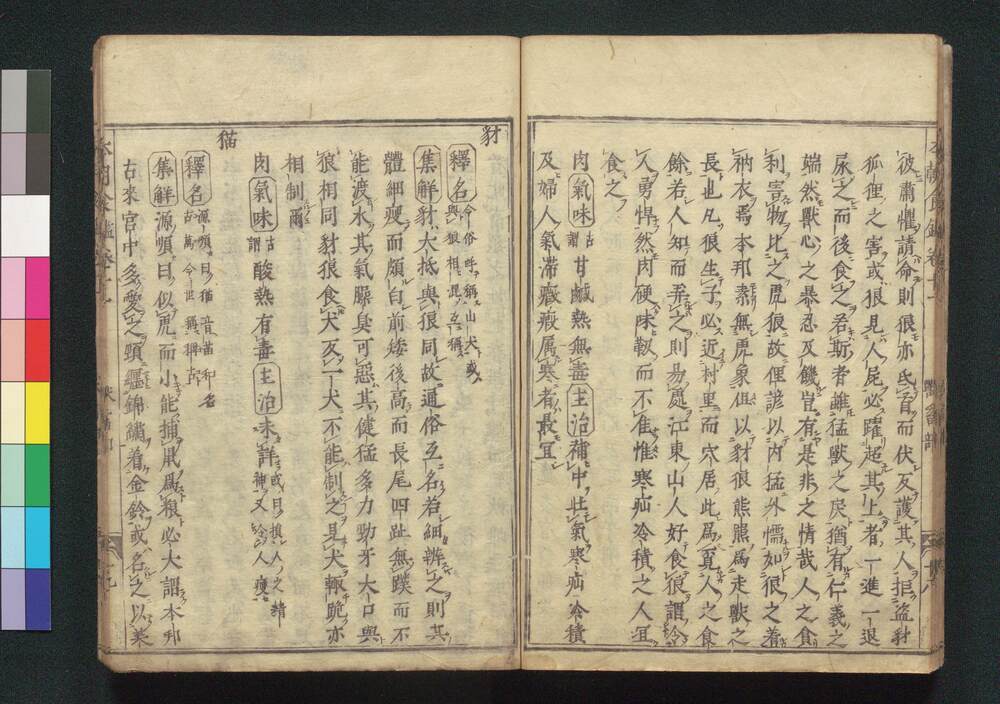 彼肅懼請命則狼亦氐首而伏反護其人拒盜豺
狐狸之害或狼見人屍必躍超其上者一進一退
尿之而後食之君斯者雖猛獸之戾猶有仁義之
端然獸心之暴忍及饑豈有是非之情哉人之貪
利害物比之虎狼故俚諺以内猛外懦如狼之着
衲衣焉本邦素無虎象但以豺狼熊羆爲走獸之
長也凡狼生子必近村里而穴居此爲覓人之食
餘若人知而弄之則易處江東山人好食狼謂食
人勇悍然肉硬味靱而不佳惟寒疝冷積之人宜
食之
肉氣味古謂甘鹹熱無毒主治補中壯氣寒疝冷積
及婦人氣滯癥瘕属寒者最宜
豺
釋名今俗呼稱山犬或與狼相混互稱
集解豺大抵與狼同故通俗互名若細辨之則其
體細瘦而頗白前矮後高而長尾四趾無蹼而不
能渡水其氣臊臭可惡其健猛多力勁牙大口與
狼相同豺狼食犬反一犬不能制之見犬輙跪亦
相制爾
肉氣味古謂酸熱有毒主治未詳或曰損人之精神又令人瘦
猫
釋名源順曰猫音苗和名古萬今世稱
集解源順曰似虎而小能捕鼠爲粮必大謂本邦
古來宮中多愛之頸纒錦繡着金鈴或名之以美